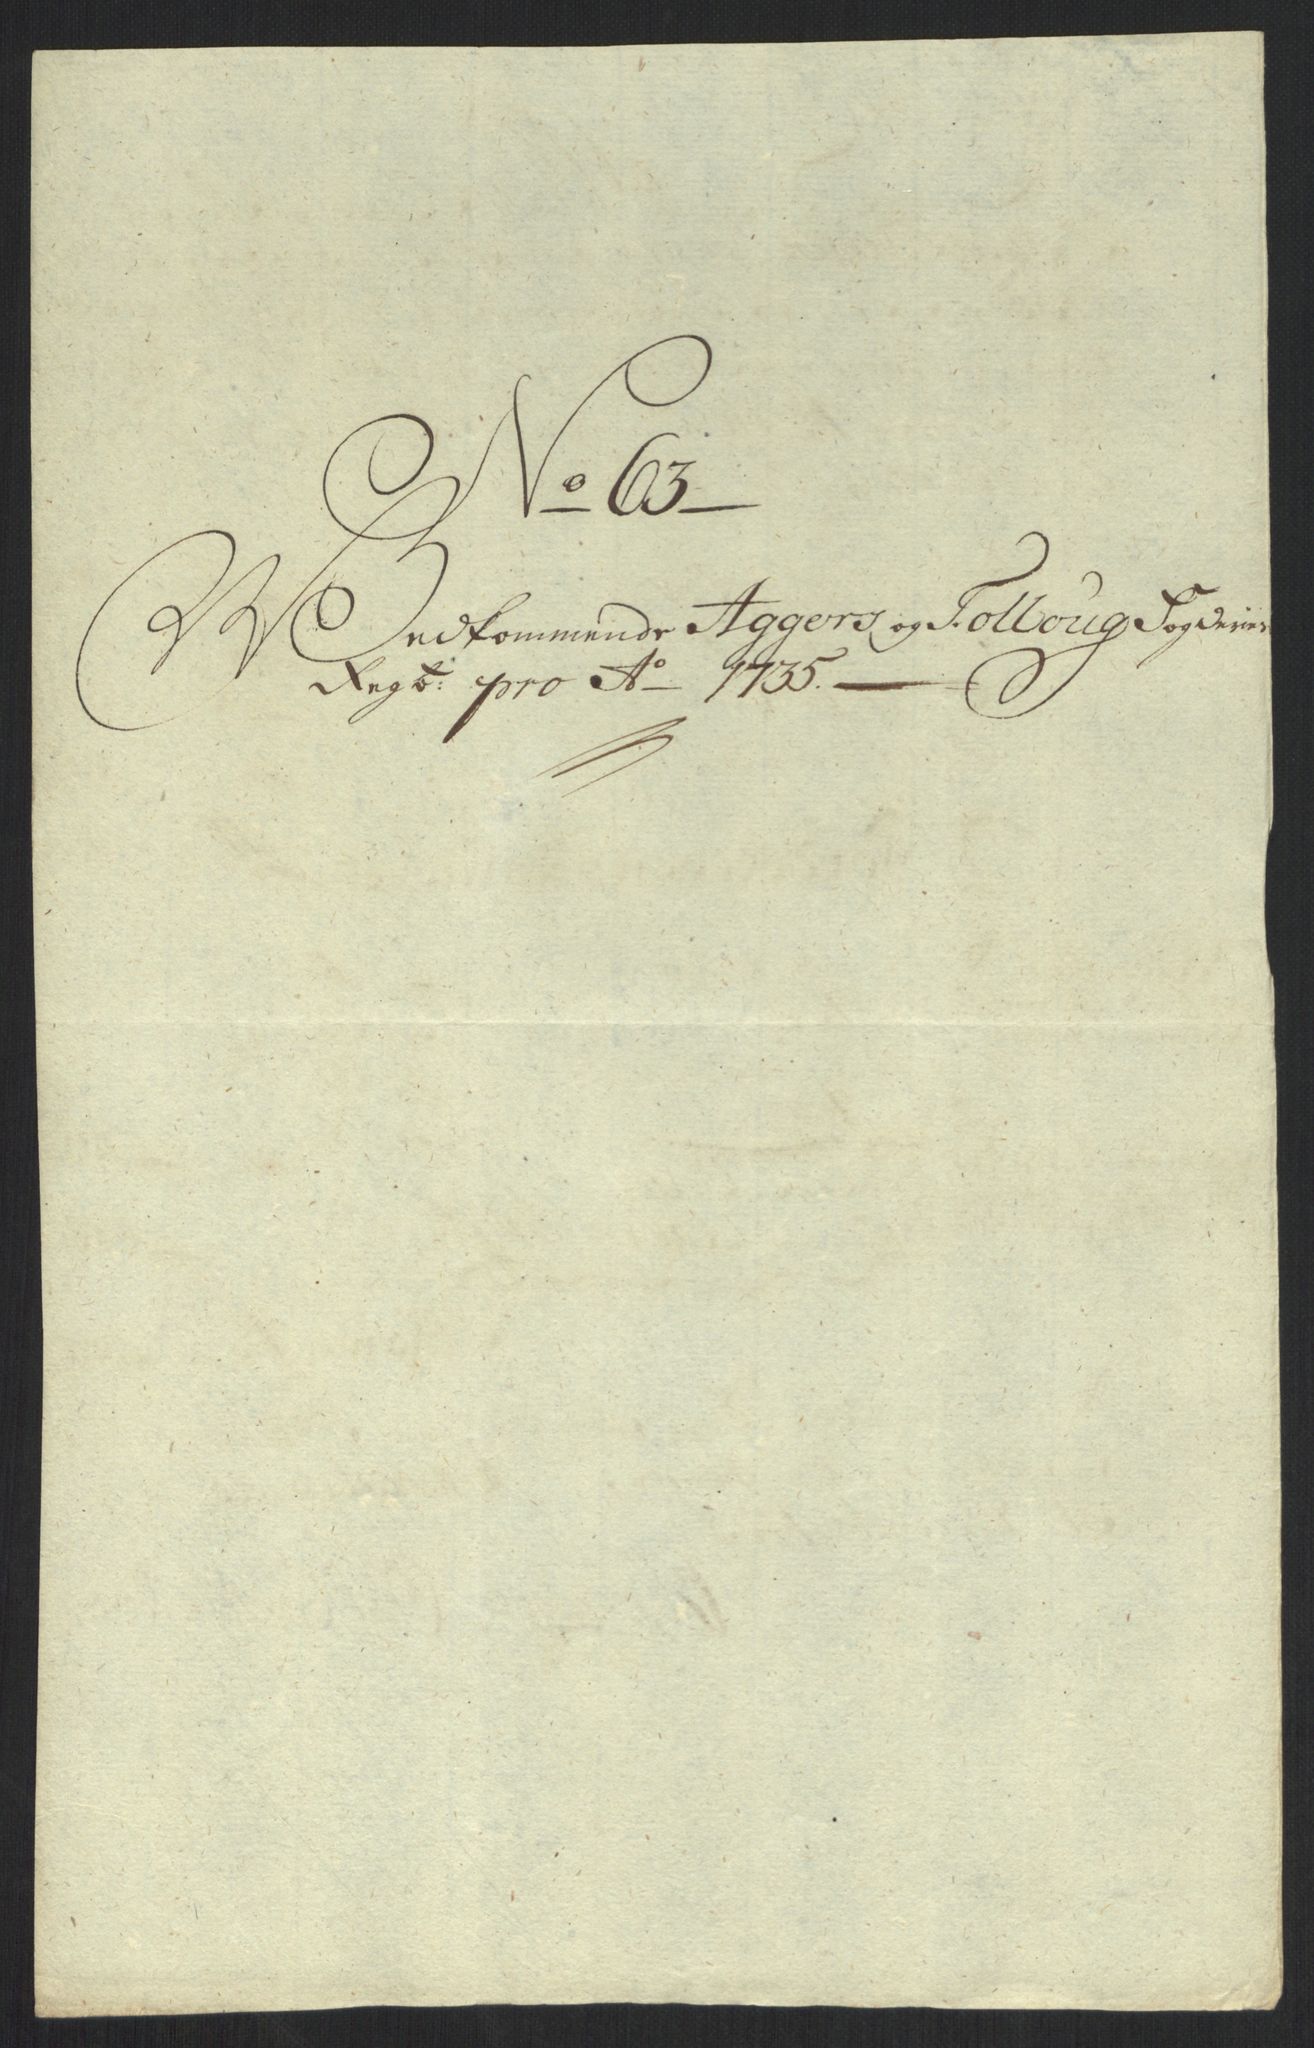 No 63
Vedkommende Aggers og Folloug Fogderier
Regsk: pro Ao 1735.